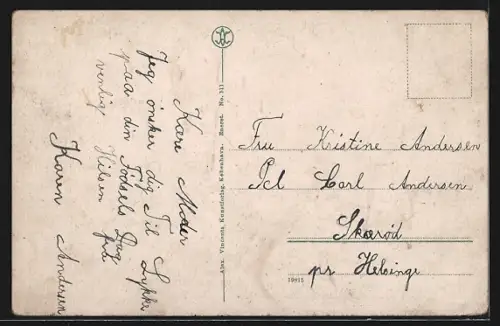 Kære Moder
Jeg ønsker dig Til Lykke
paa din Fødsels Dag
venlig Hilsen fra
Karen Andersen
Alex. Vincents Kunstforlag, København. Eneret. No. 111
Fru Kristine Andersen
Carl Andersen
Skærød
pr Helsinge
19815